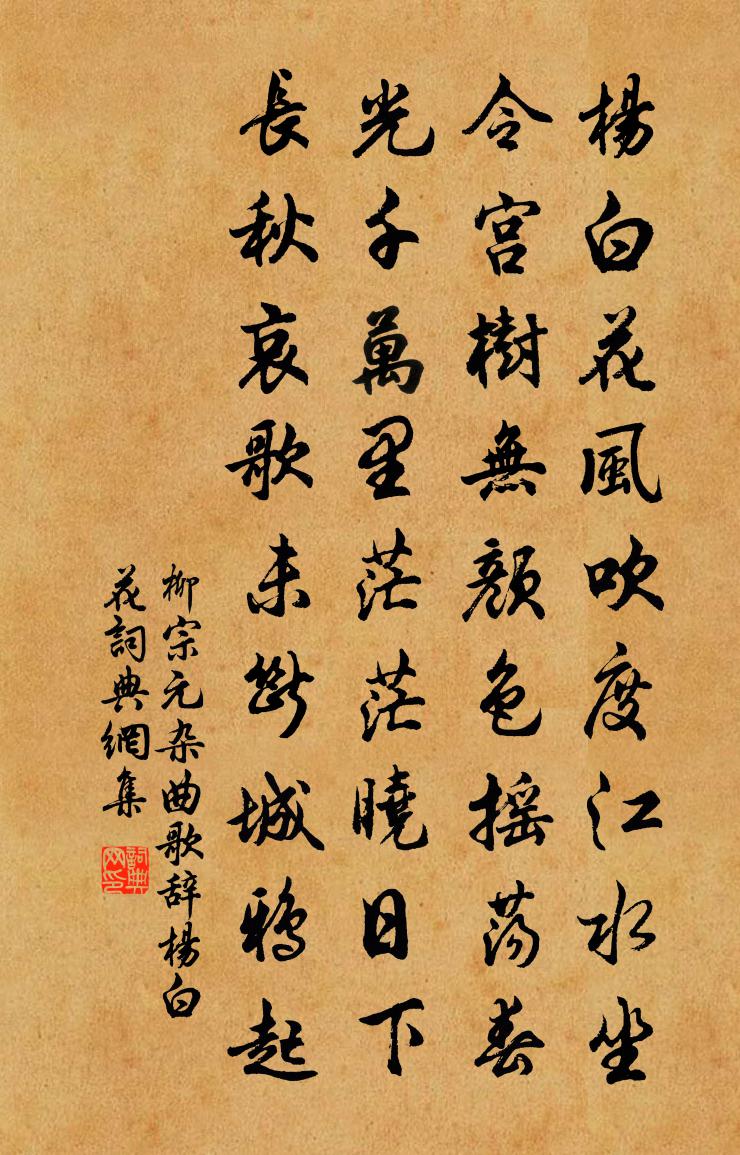 楊白花風吹度江水坐
令宮樹無顏色搖蕩春
光千萬里茫茫曉日下
長秋哀歌未斷城鴉起
柳宗元杂曲歌辞楊白
花詞典網集
詞典网印